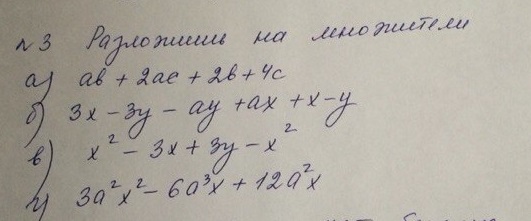 №3 Разложить на множители
а) ab + 2ac + 2b + 4c
б) 3x - 3y - ay + ax + x - y
в) x² - 3x + 3y - x²
г) 3a²x² - 6a³x + 12a²x